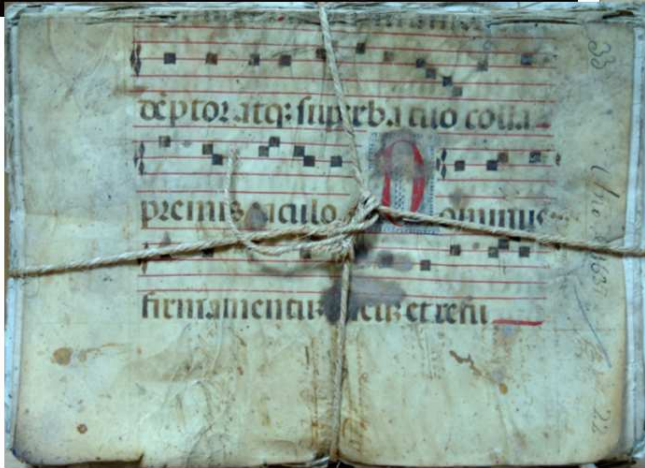 dēptor atq: superba tuo colla
premis iaculo. Dominus
firmamentuz meuz et refu
33
22